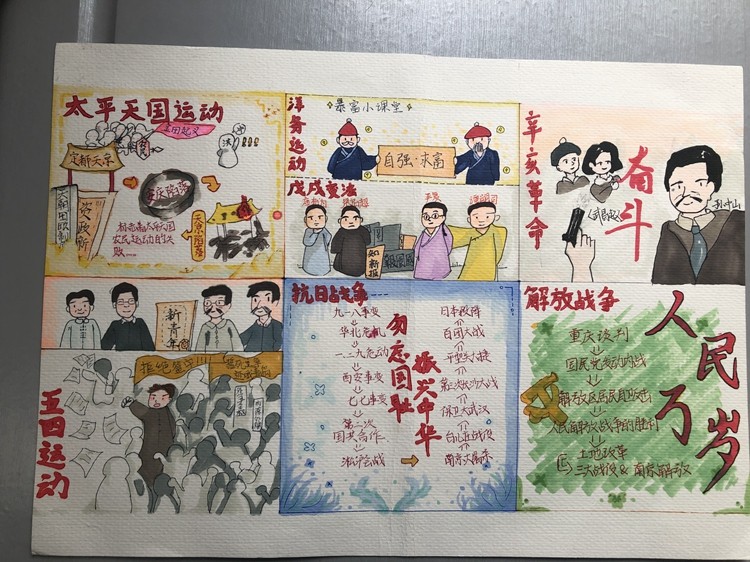 太平天国运动
金田起义
定都天京
天朝田亩制
资政新
天京陷落
标志着太平天国
农民运动的失
败……
洋务运动
暴富小课堂
自强·求富
戊戌变法
康有为
梁启超
严复
谭嗣同
知新报
辛亥革命
奋斗
孙中山
新青年
五四运动
拒绝签字!!!
抗日战争
九一八事变
华北危机
一二九运动
西安事变
七七事变
第二次
国共合作
淞沪会战
勿忘国耻
振兴中华
日本投降
百团大战
平型关大捷
保卫大武汉
台儿庄战役
南京大屠杀
解放战争
重庆谈判
国民党发动内战
解放区军民自卫反击
人民解放战争的胜利
土地改革
三大战役&南京解放
人民万岁